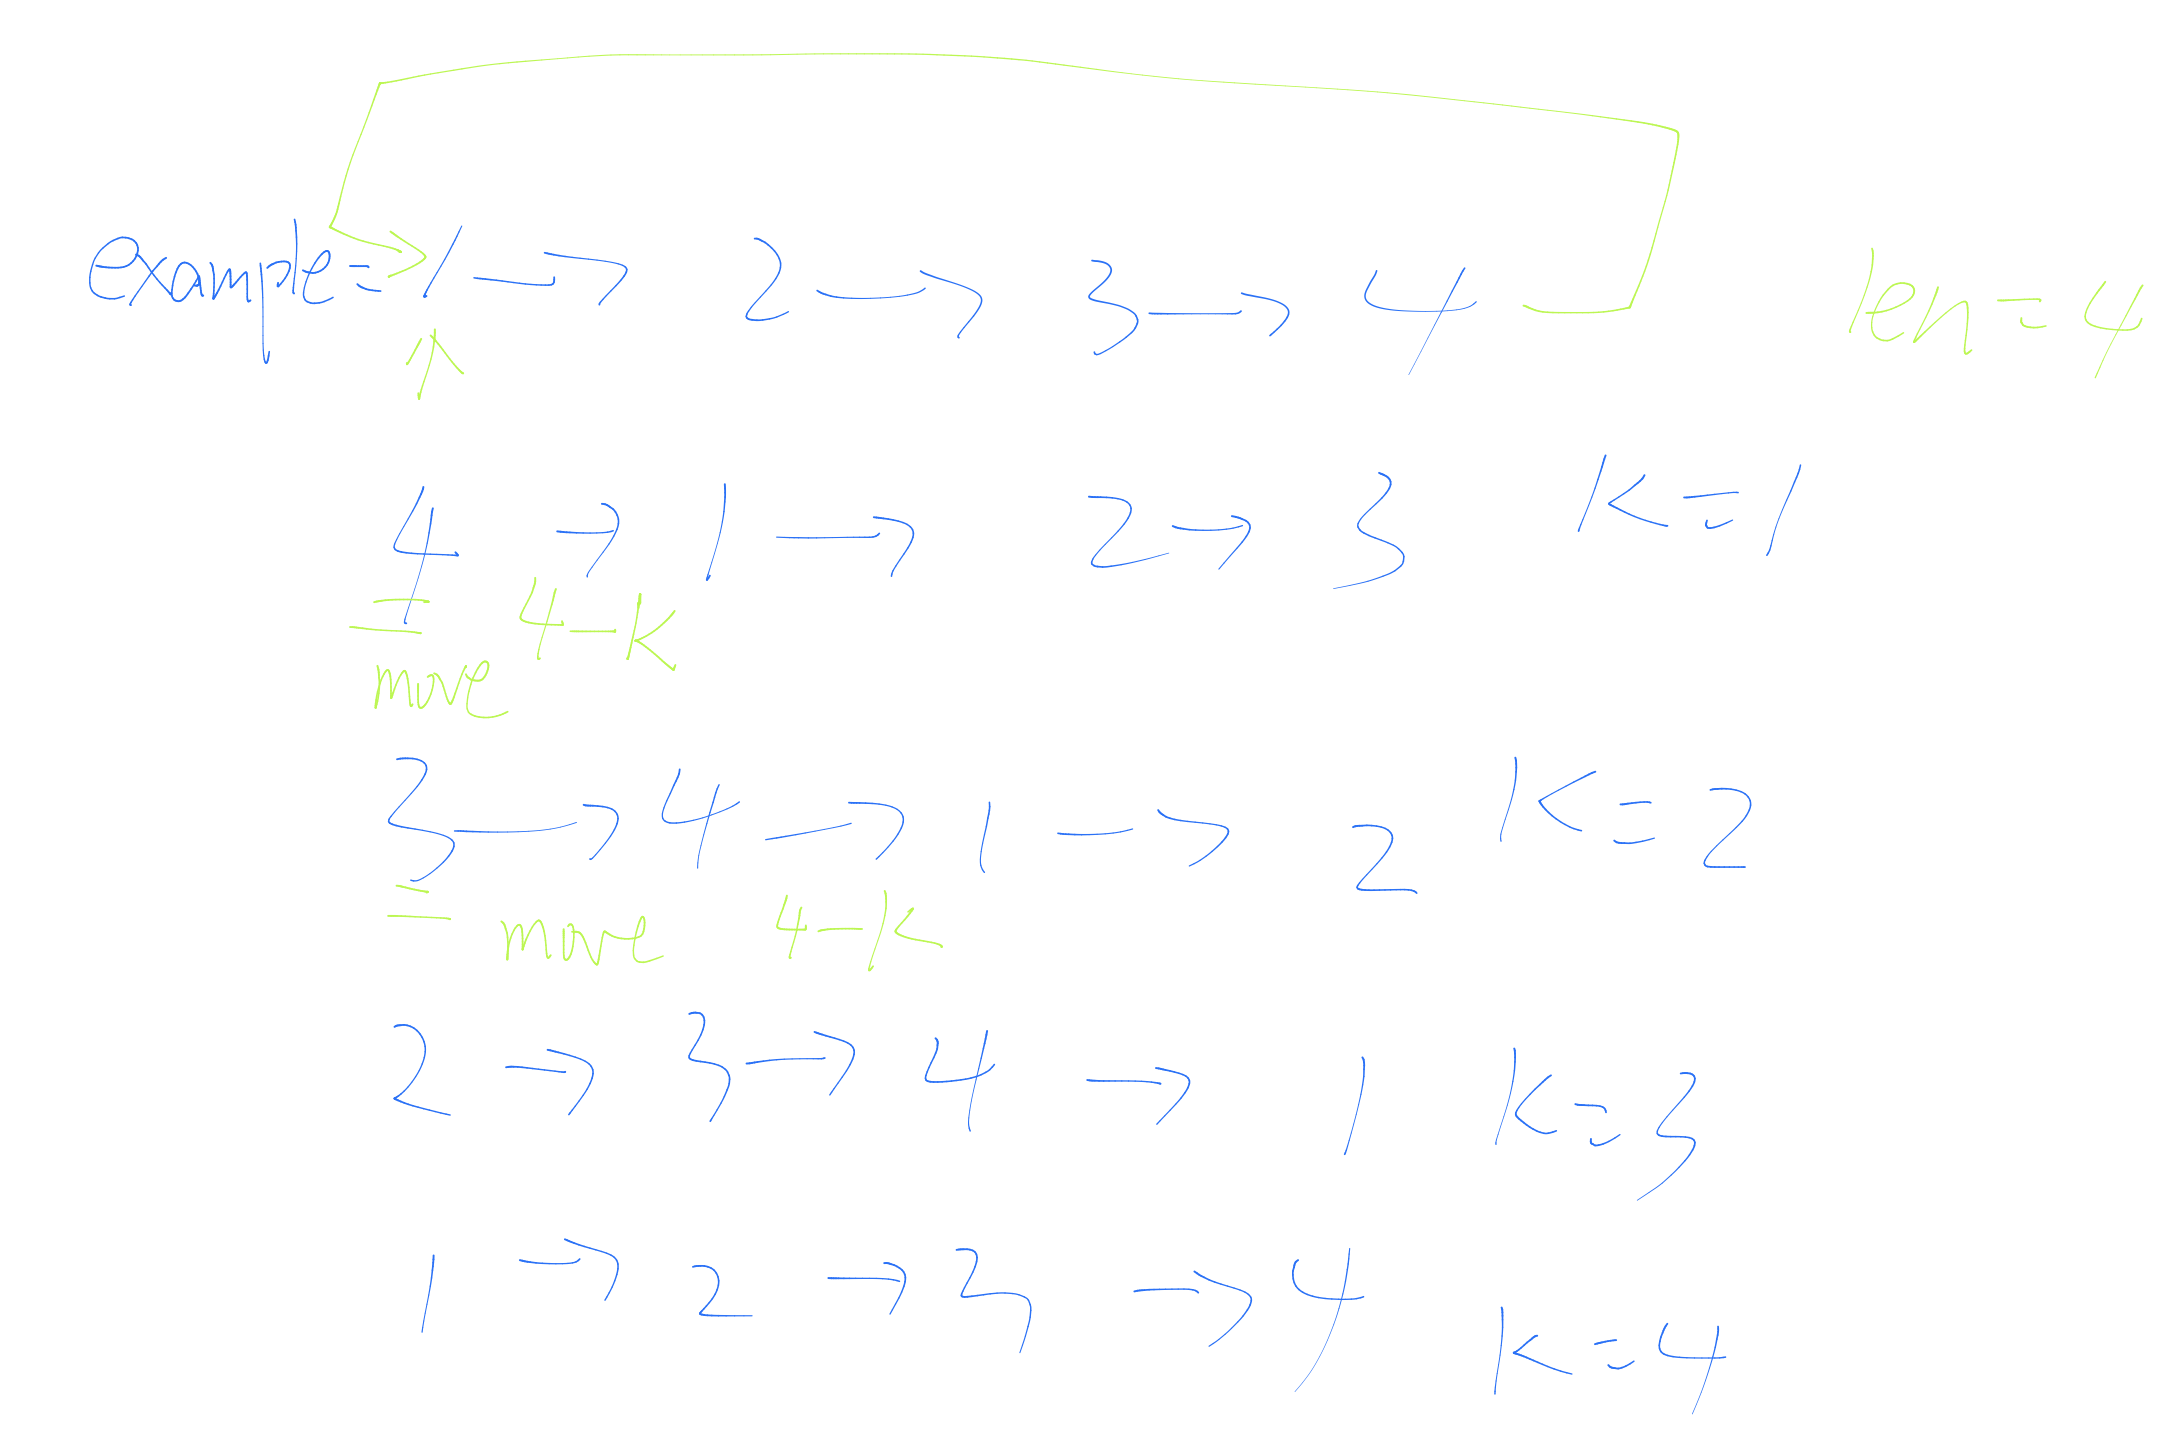 example = 1 → 2 → 3 → 4 len = 4
4 → 1 → 2 → 3 K = 1
move 4 - K
3 → 4 → 1 → 2 K = 2
move 4 - K
2 → 3 → 4 → 1 K = 3
1 → 2 → 3 → 4 K = 4